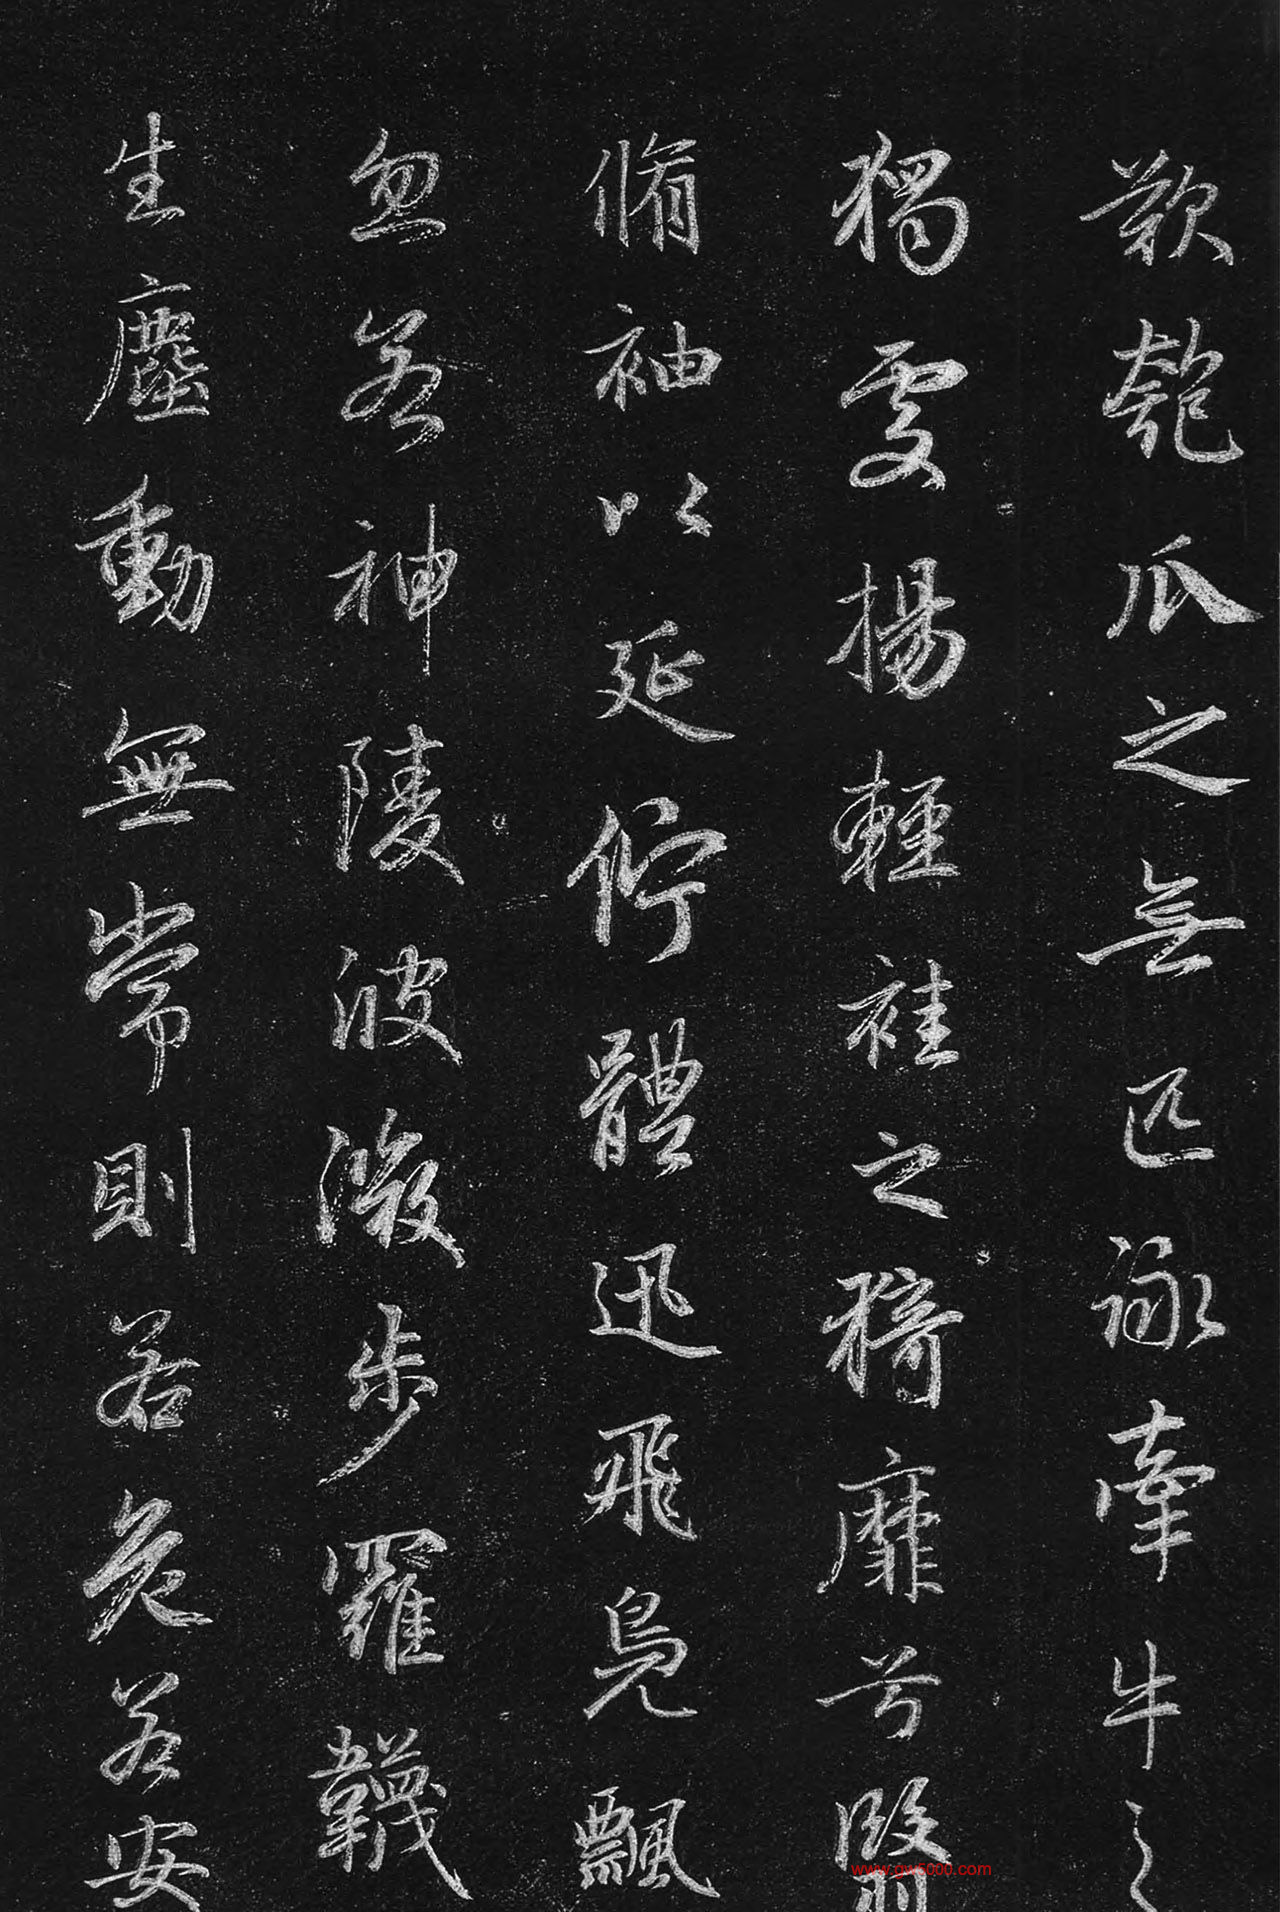 歎匏瓜之無匹詠牽牛之
獨處揚輕袿之猗靡兮翳
脩袖以延佇體迅飛鳧飄
忽若神陵波微步羅韈
生塵動無常則若危若安
www.gw5000.com